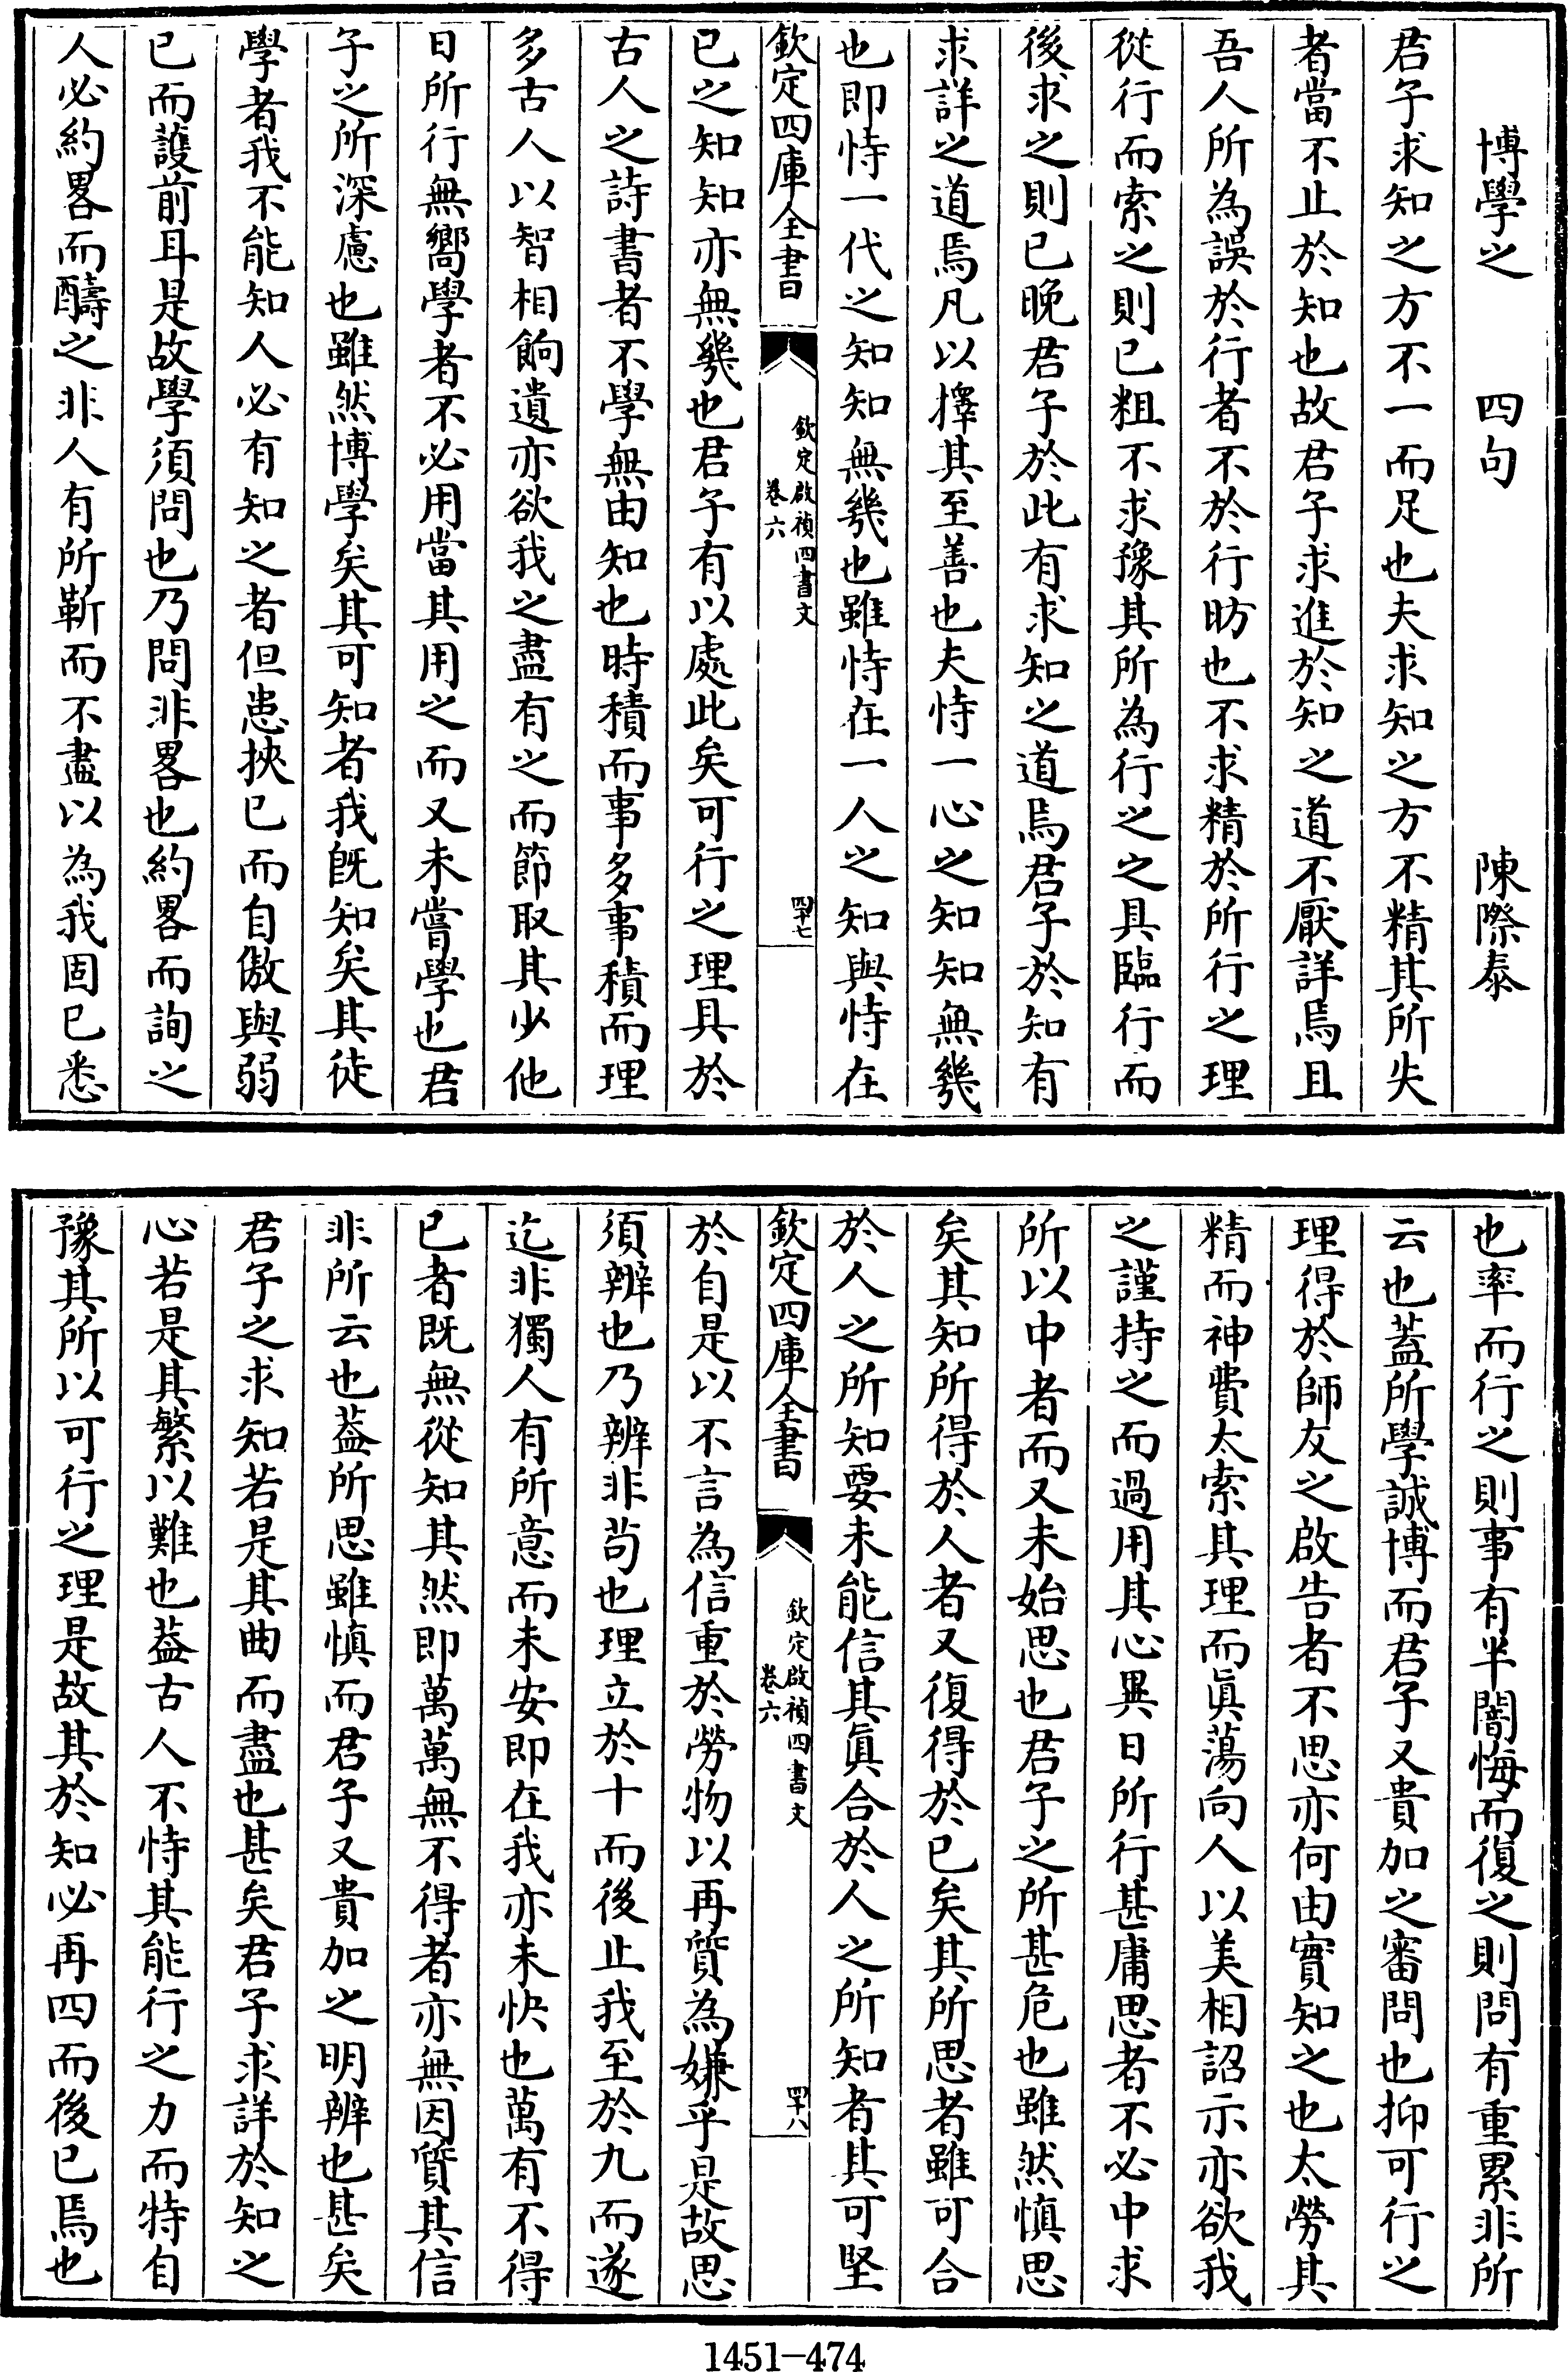 博學之　四句　陳際泰
君子求知之方不一而足也夫求知之方不精其所失
者當不止於知也故君子求進於知之道不厭詳焉且
吾人所為誤於行者不於行昉也不求精於所行之理
從行而索之則已粗不求豫其所為行之之具臨行而
後求之則已晚君子於此有求知之道焉君子於知有
求詳之道焉凡以擇其至善也夫恃一心之知知無幾
也即恃一代之知知無幾也雖恃在一人之知與恃在
欽定四庫全書
欽定啟禎四書文
卷六
四十七
已之知知亦無幾也君子有以處此矣可行之理具於
古人之詩書者不學無由知也時積而事多事積而理
多古人以智相餉遺亦欲我之盡有之而節取其少他
日所行無嚮學者不必用當其用之而又未嘗學也君
子之所深慮也雖然博學矣其可知者我既知矣其徒
學者我不能知人必有知之者但患挾已而自傲與弱
已而護前耳是故學須問也乃問非畧也約畧而詢之
人必約畧而醻之非人有所靳而不盡以為我固已悉
也率而行之則事有半闇悔而復之則問有重累非所
云也蓋所學誠博而君子又貴加之審問也抑可行之
理得於師友之啟告者不思亦何由實知之也太勞其
精而神費太索其理而眞蕩向人以美相詔示亦欲我
之謹持之而過用其心異日所行甚庸思者不必中求
所以中者而又未始思也君子之所甚危也雖然慎思
矣其知所得於人者又復得於已矣其所思者雖可合
於人之所知要未能信其眞合於人之所知者其可堅
欽定四庫全書
欽定啟禎四書文
卷六
四十八
於自是以不言為信重於勞物以再質為嫌乎是故思
須辨也乃辨非苟也理立於十而後止我至於九而遂
迄非獨人有所意而未安即在我亦未快也萬有不得
已者既無從知其然即萬萬無不得者亦無因質其信
非所云也葢所思雖慎而君子又貴加之明辨也甚矣
君子之求知若是其曲而盡也甚矣君子求詳於知之
心若是其繁以難也葢古人不恃其能行之力而特自
豫其所以可行之理是故其於知必再四而後已焉也
1451-474